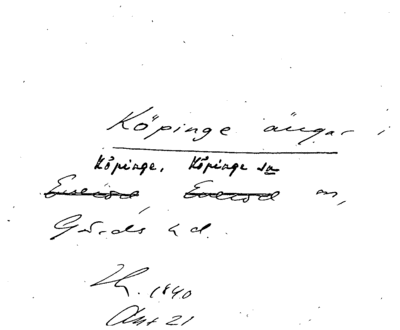 Köpinge ängar i
Köpinge, Köpinge sn
Everöd, Everöd sn,
Gärds hd.
1940
21